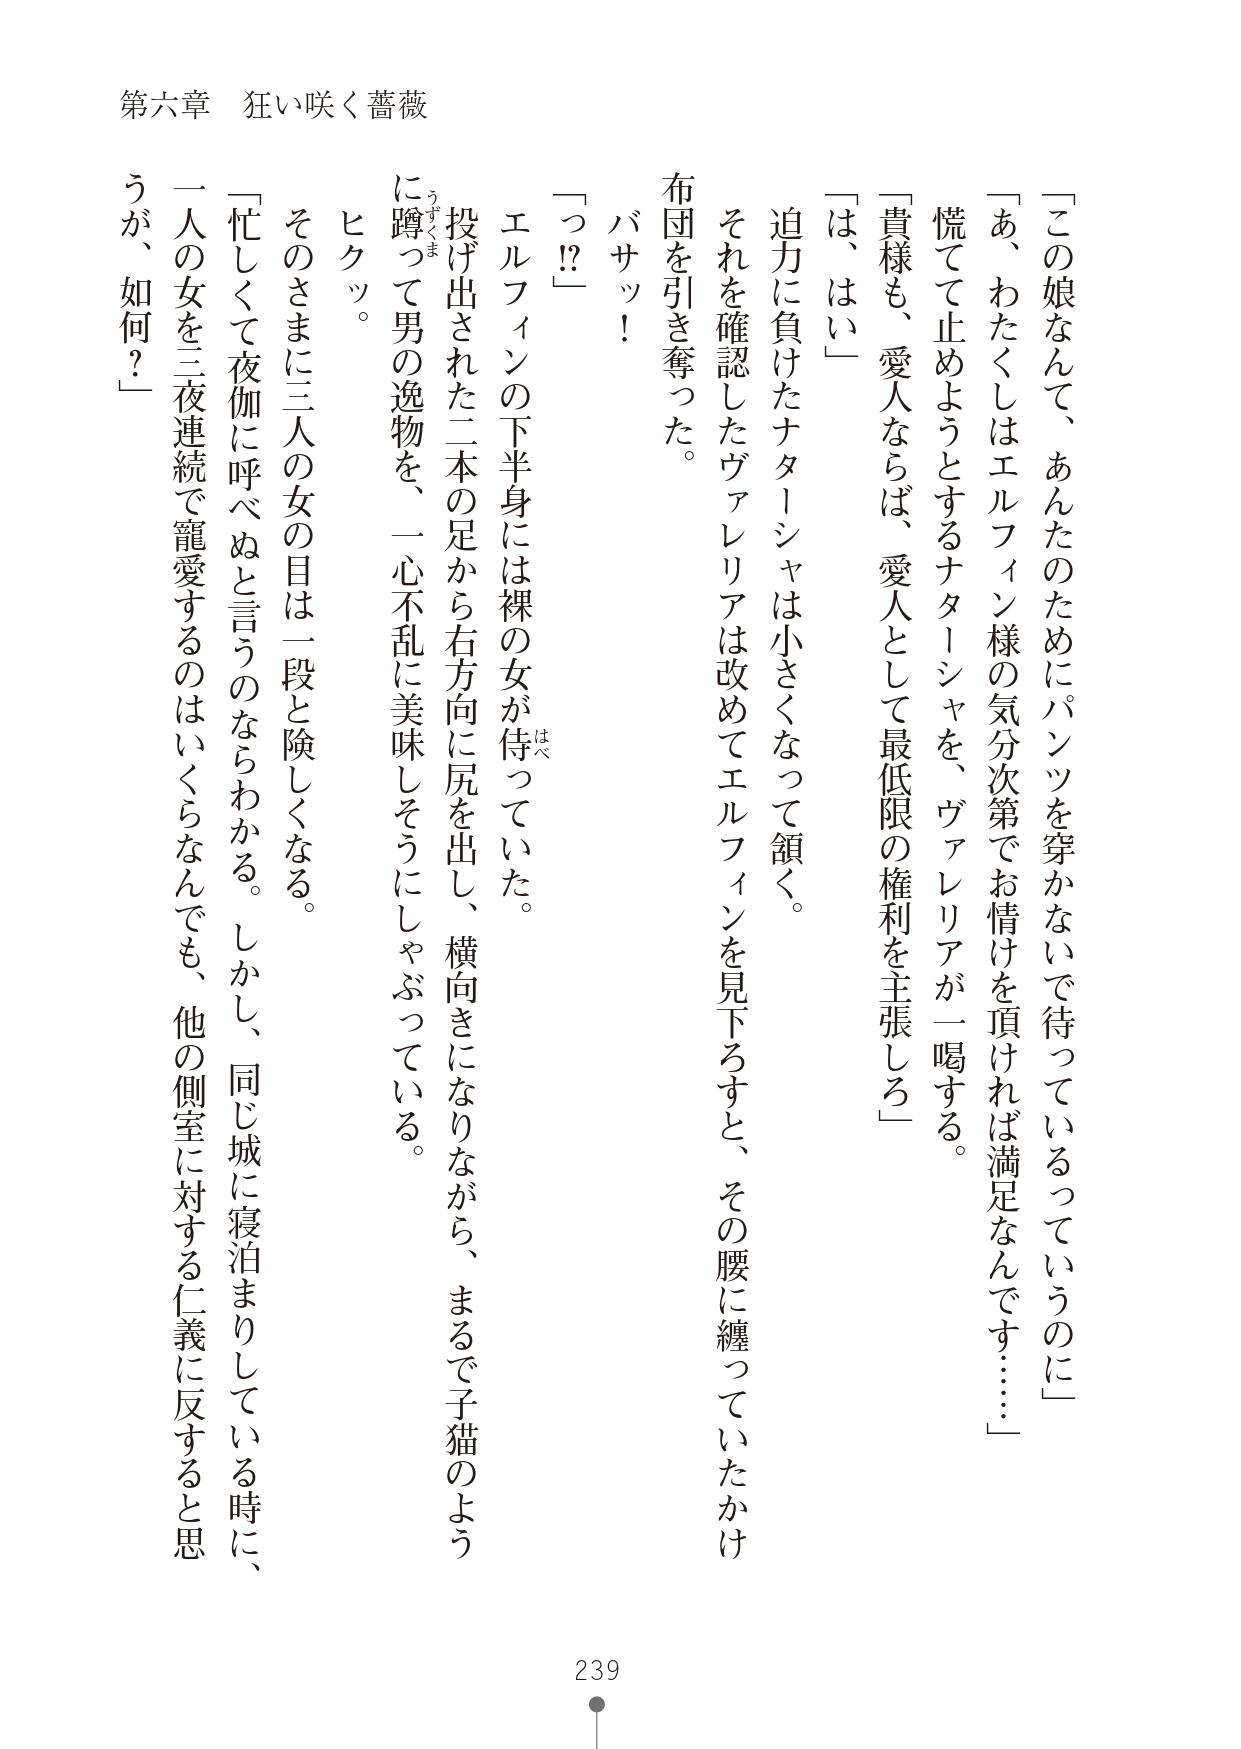 第六章　狂い咲く薔薇
「この娘なんて、あんたのためにパンツを穿かないで待っているっていうのに」
「あ、わたくしはエルフィン様の気分次第でお情けを頂ければ満足なんです……」
慌てて止めようとするナターシャを、ヴァレリアが一喝する。
「貴様も、愛人ならば、愛人として最低限の権利を主張しろ」
「は、はい」
迫力に負けたナターシャは小さくなって頷く。
それを確認したヴァレリアは改めてエルフィンを見下ろすと、その腰に纏っていたかけ
布団を引き奪った。
バサッ！
「っ!?」
エルフィンの下半身には裸の女が侍っていた。
はべ
投げ出された二本の足から右方向に尻を出し、横向きになりながら、まるで子猫のよう
に蹲って男の逸物を、一心不乱に美味しそうにしゃぶっている。
うずくま
ヒクッ。
そのさまに三人の女の目は一段と険しくなる。
「忙しくて夜伽に呼べぬと言うのならわかる。しかし、同じ城に寝泊まりしている時に、
一人の女を三夜連続で寵愛するのはいくらなんでも、他の側室に対する仁義に反すると思
うが、如何？」
239